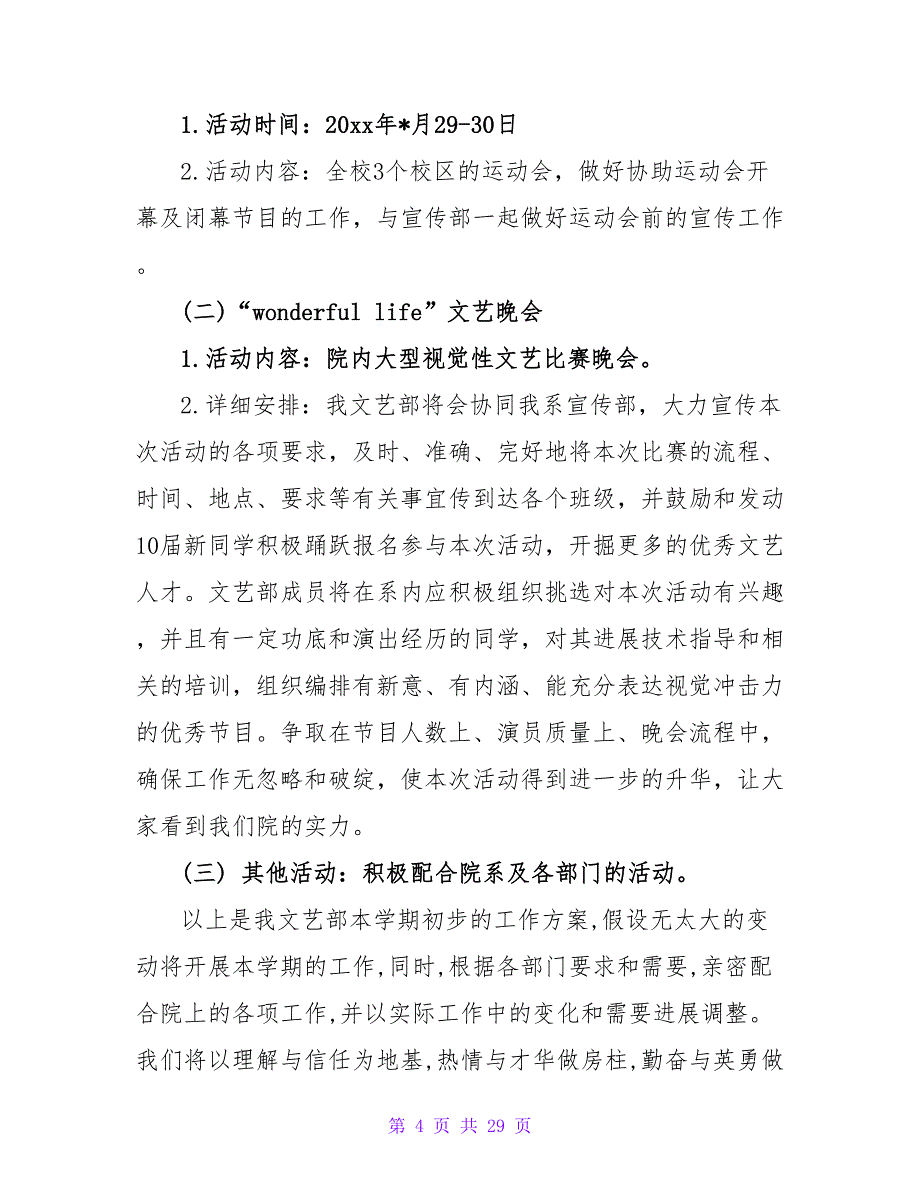 1.活动时间：20xx年*月29-30日
2.活动内容：全校3个校区的运动会，做好协助运动会开
幕及闭幕节目的工作，与宣传部一起做好运动会前的宣传工作
。
(二)“wonderful life”文艺晚会
1.活动内容：院内大型视觉性文艺比赛晚会。
2.详细安排：我文艺部将会协同我系宣传部，大力宣传本
次活动的各项要求，及时、准确、完好地将本次比赛的流程、
时间、地点、要求等有关事宣传到达各个班级，并鼓励和发动
10届新同学积极踊跃报名参与本次活动，开掘更多的优秀文艺
人才。文艺部成员将在系内应积极组织挑选对本次活动有兴趣
，并且有一定功底和演出经历的同学，对其进展技术指导和相
关的培训，组织编排有新意、有内涵、能充分表达视觉冲击力
的优秀节目。争取在节目人数上、演员质量上、晚会流程中，
确保工作无忽略和破绽，使本次活动得到进一步的升华，让大
家看到我们院的实力。
(三) 其他活动：积极配合院系及各部门的活动。
以上是我文艺部本学期初步的工作方案,假设无太大的变
动将开展本学期的工作,同时,根据各部门要求和需要,亲密配
合院上的各项工作,并以实际工作中的变化和需要进展调整。
我们将以理解与信任为地基,热情与才华做房柱,勤奋与英勇做
第 4 页 共 29 页